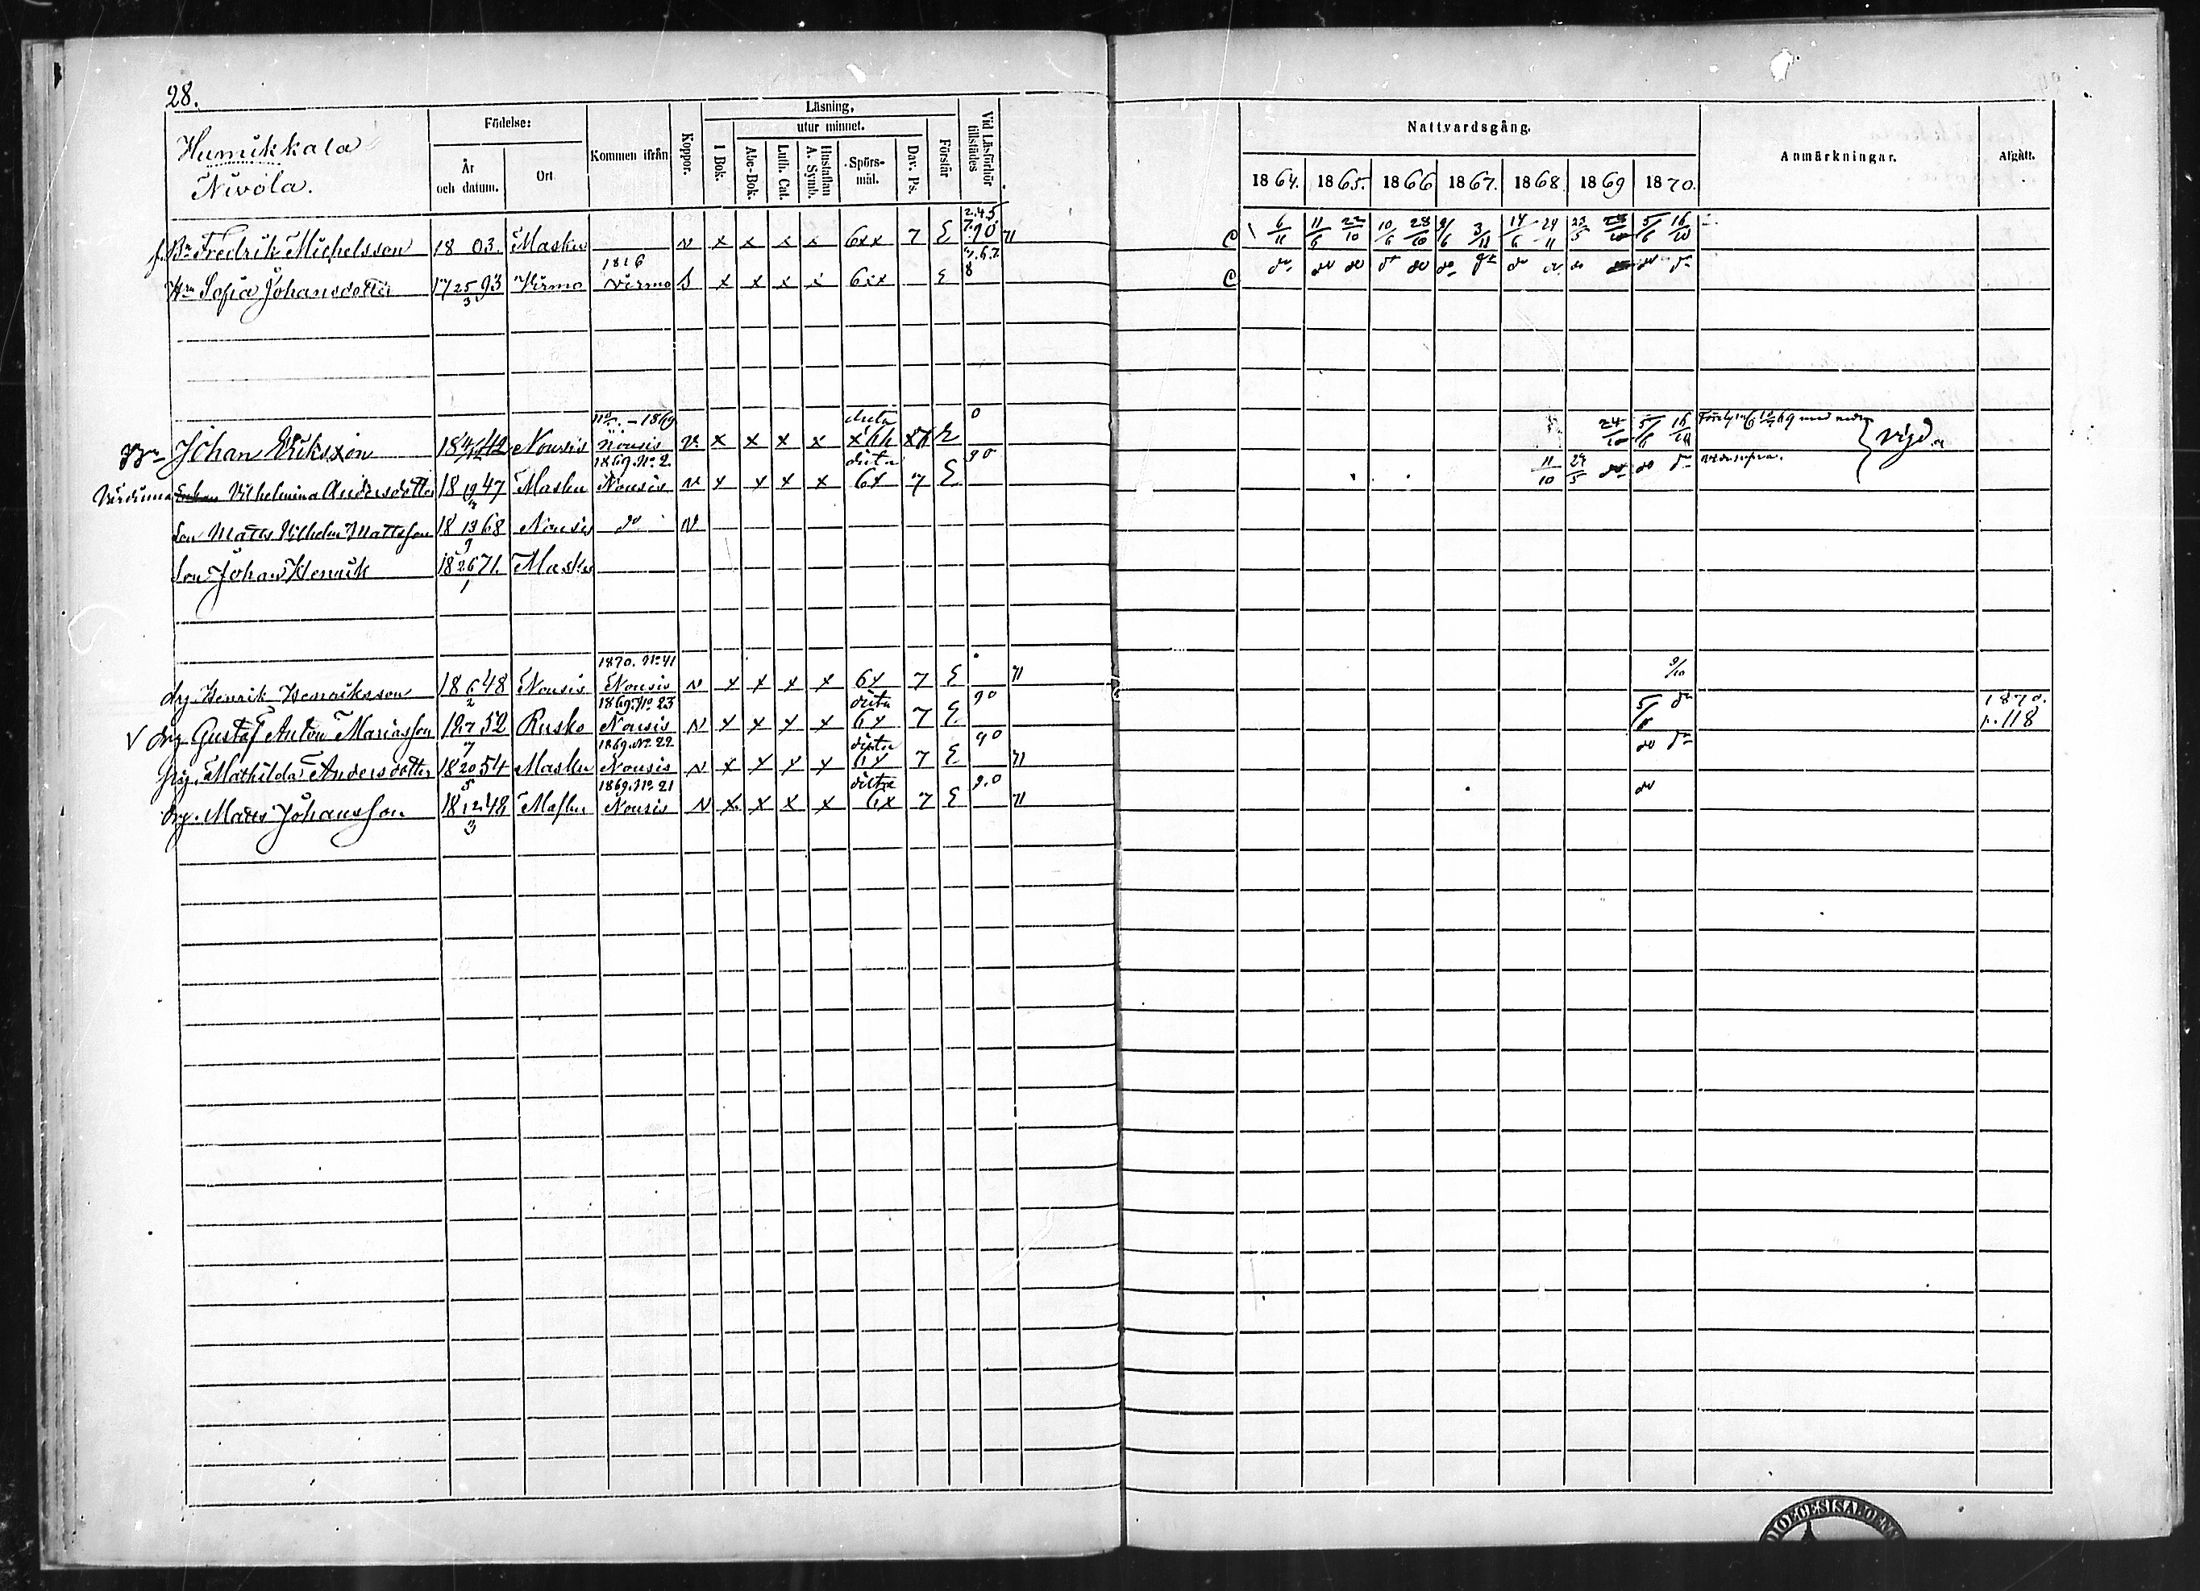 28.
Humikkala
Nivola.
Födelse:
År och datum.
Ort
Kommen ifrån
Koppor.
Läsning,
utur minnet.
I Bok.
Abc-Bok.
Luth. Cat.
Hustaflan A. Symb.
Spörs-mål.
Dav. Ps.
Förstår
Vid Läsförhör tillstädes
Nattvardsgång.
1864. 1865. 1866 1867. 1868 1869 1870.
Anmärkningar.
Afgått.
f. Bn Fredrik Michelsson 18 03. Masku v x x x x 6xx 7 E 71 C 6/11 11/6 22/10 10/6 28/10 9/6 3/11 14/6 29/11 23/5 5/6 16/10
Hn Sofia Johansdotter 17 25/3 93 Virmo 1816 Virmo S x x x x 6xx E 8 C
Johan Eriksson 18 42 Nousis 1869 Nousis v x x x x E 0 24/10 5/6 16/10 vigd
Vilhelmina Andersdotter 18 19 47 Masku 1869. No 2. Nousis v x x x x 6x 7 E 90 11/10 29/5 do do do vide supra.
Son Matts Vilhelm Mattsson 18 13/9 68 Nousis do v
Son Johan Henrik 18 26/1 71. Masku
drg. Henrik Henriksson 18 6/2 48 Nousis 1870. No 41 Nousis v x x x x 6x 7 E 71 9/10
V drg. Gustaf Anton Mariasson 18 7 52 Rusko 1869. No 23 Nousis v x x x x 6x 7 E 90 do 1870. p. 118
pig. Mathilda Andersdotter 18 20/5 54 Masku 1869. No 22 Nousis v x x x x 6x 7 E 90 71 do do
drg. Matts Johansson 18 12/3 48 Masku 1869. No 21 Nousis v x x x x 6x 7 E 90 71 do
DIOECESIS ABOENSIS